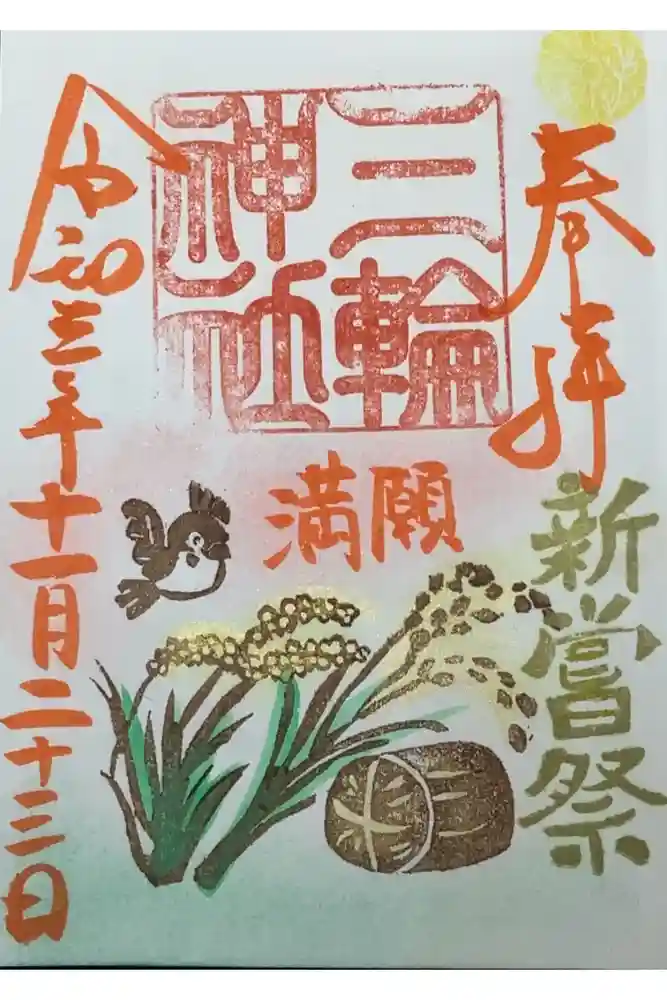 奉拝
新嘗祭
三輪
神社
願
満
令和三年十一月二十三日